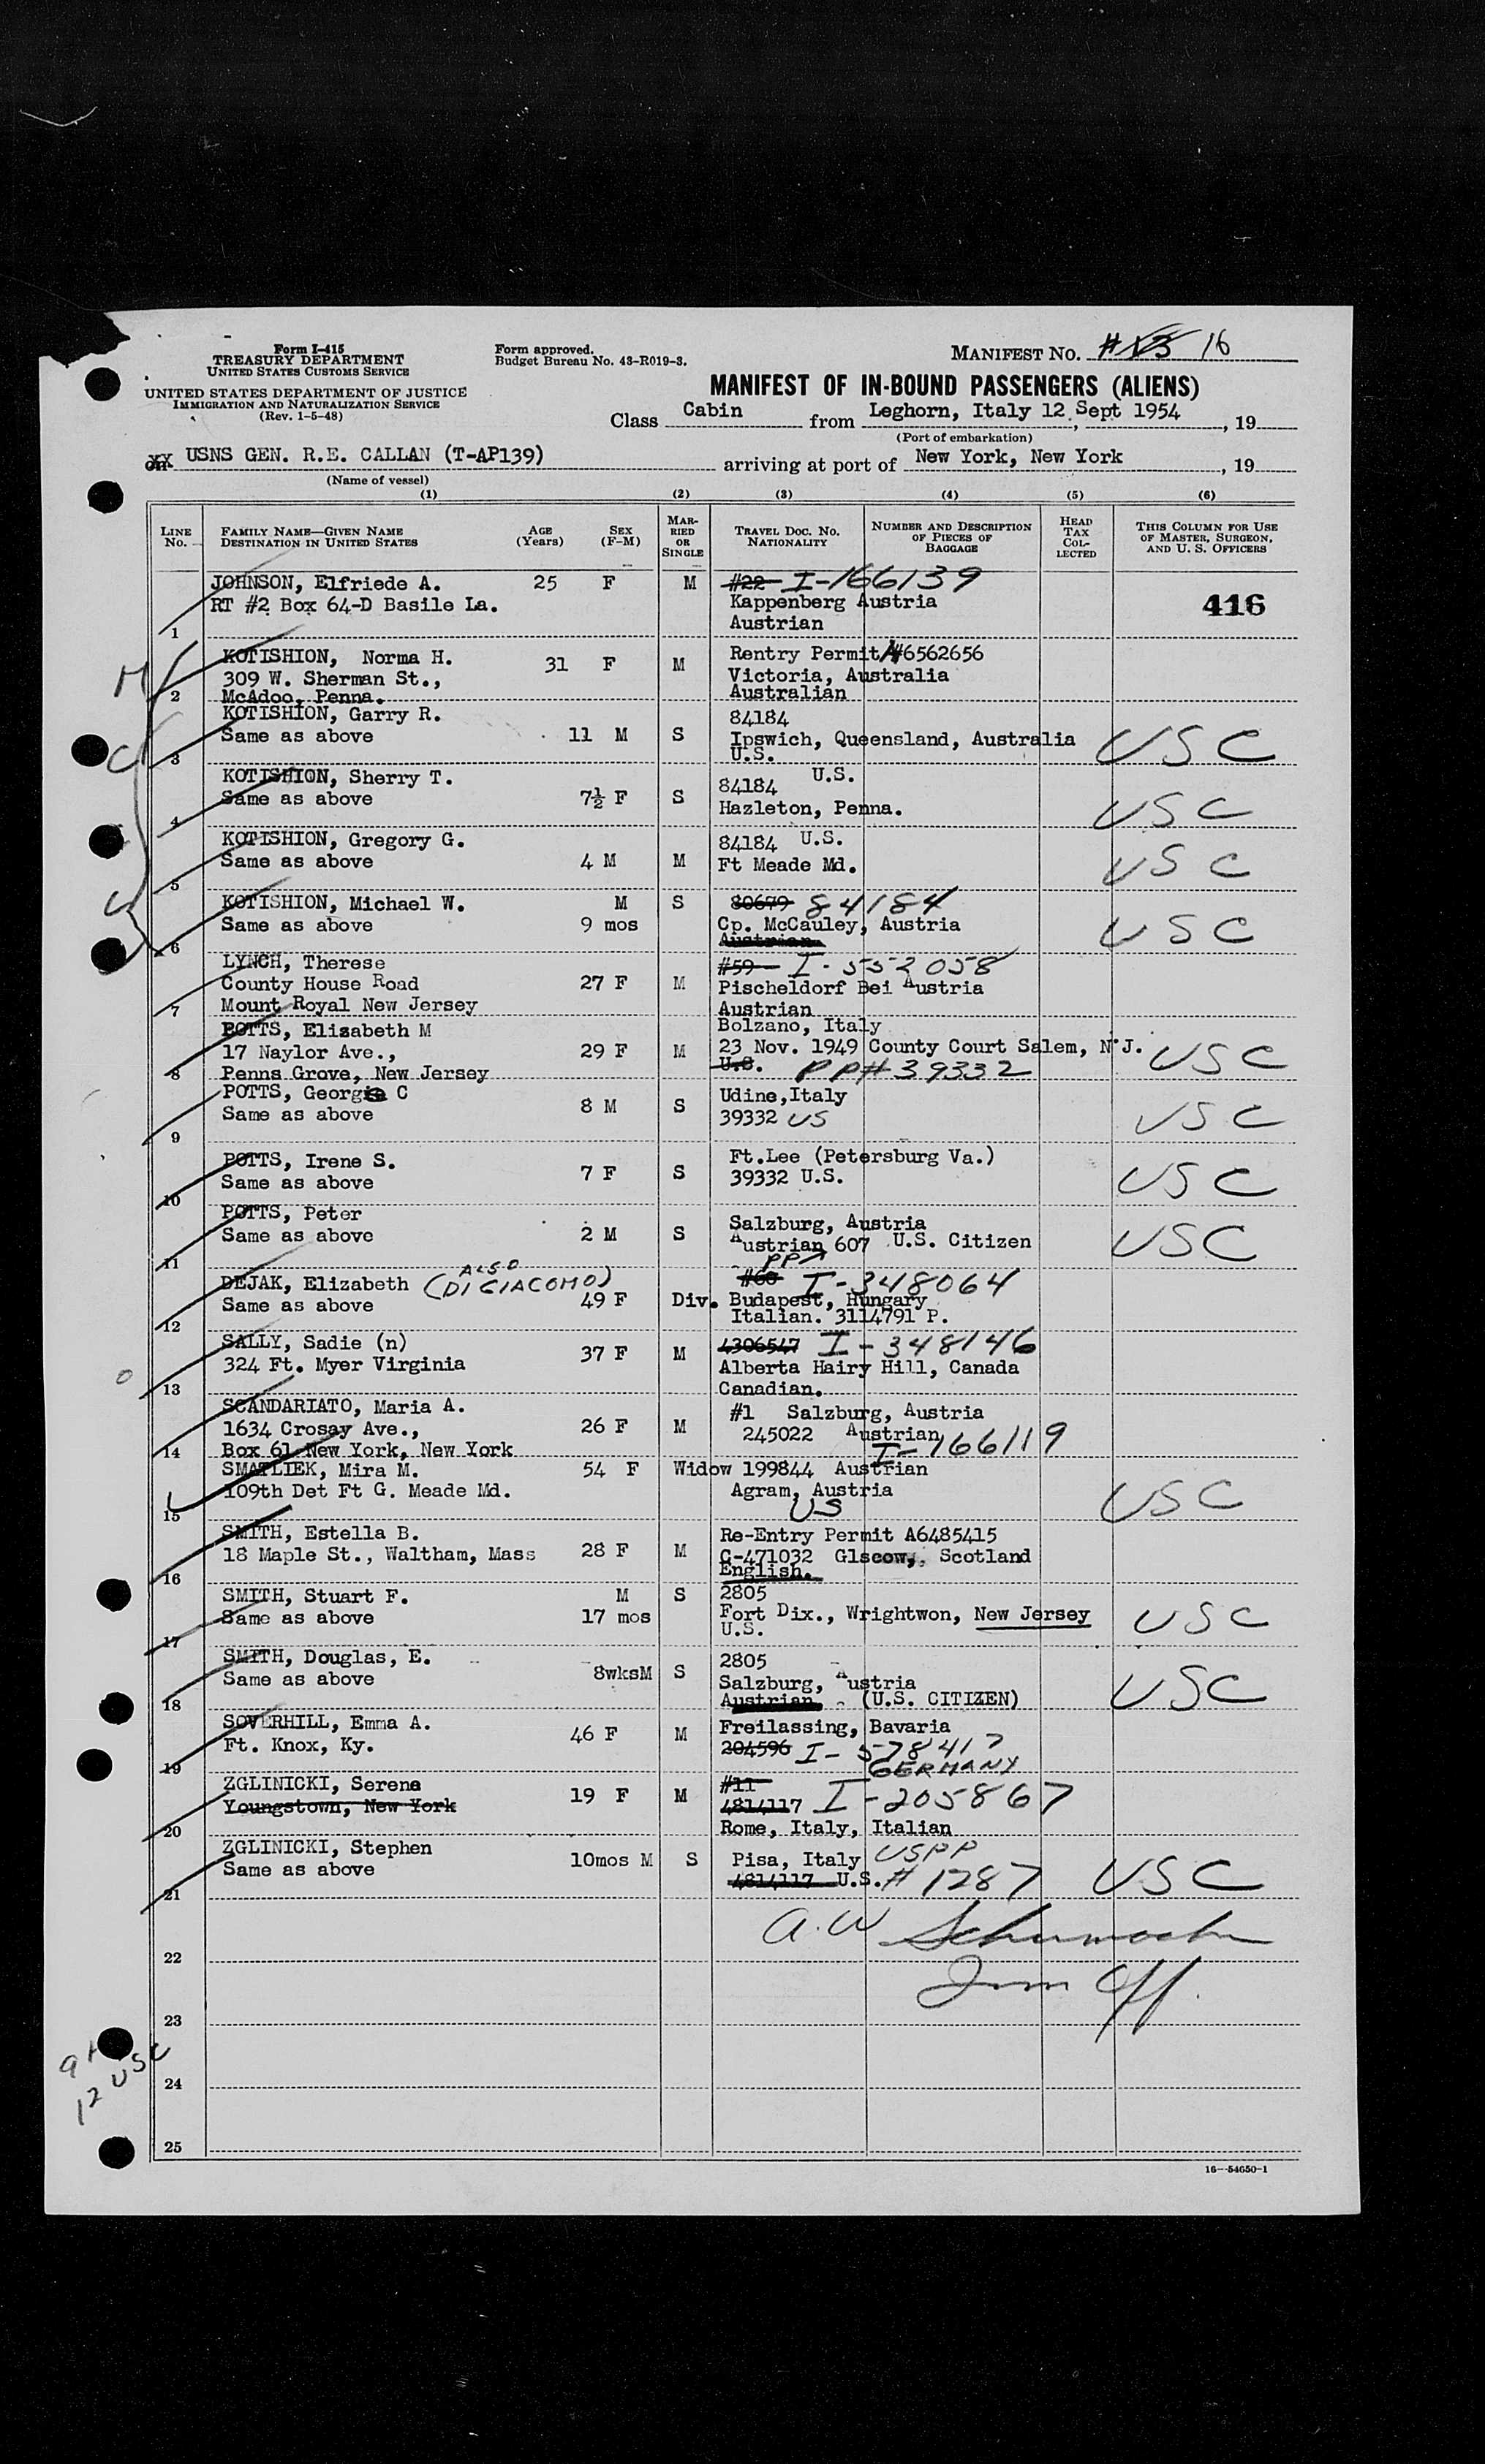 Form I-415
TREASURY DEPARTMENT
UNITED STATES CUSTOMS SERVICE
UNITED STATES DEPARTMENT OF JUSTICE
IMMIGRATION AND NATURALIZATION SERVICE
(Rev. 1-5-48)
Form approved.
Budget Bureau No. 43-R019-3.
MANIFEST NO. #15 16
MANIFEST OF IN-BOUND PASSENGERS (ALIENS)
Class Cabin from Leghorn, Italy 12 Sept 1954, 19
(Port of embarkation)
on XX USNS GEN. R.E. CALLAN (T-AP139) arriving at port of New York, New York, 19
(Name of vessel)
(1) (2) (3) (4) (5) (6)
LINE No. FAMILY NAME—GIVEN NAME DESTINATION IN UNITED STATES AGE (Years) SEX (F-M) MARRIED OR SINGLE TRAVEL DOC. NO. NATIONALITY NUMBER AND DESCRIPTION OF PIECES OF BAGGAGE HEAD TAX COLLECTED THIS COLUMN FOR USE OF MASTER, SURGEON, AND U. S. OFFICERS
JOHNSON, Elfriede A. 25 F M #22 I-166139
RT #2 Box 64-D Basile La. Kappenberg Austria 416
1 Austrian
KOTISHION, Norma H. 31 F M Rentry Permit A#6562656
309 W. Sherman St., Victoria, Australia
2 McAdoo, Penna. Australian
KOTISHION, Garry R. 84184
Same as above 11 M S Ipswich, Queensland, Australia USC
3 U.S.
KOTISHION, Sherry T. 84184 U.S.
Same as above 7½ F S Hazleton, Penna. USC
4
KOTISHION, Gregory G. 84184 U.S.
Same as above 4 M M Ft Meade Md. USC
5
KOTISHION, Michael W. M S 80679 84184
Same as above 9 mos Cp. McCauley, Austria USC
6 Austrian
LYNCH, Therese #59 I-552058
County House Road 27 F M Pischeldorf Bei Austria
7 Mount Royal New Jersey Austrian
POTTS, Elizabeth M Bolzano, Italy
17 Naylor Ave., 29 F M 23 Nov. 1949 County Court Salem, N.J. USC
8 Penns Grove, New Jersey U.S. PP# 39332
POTTS, George C Udine,Italy
Same as above 8 M S 39332 US USC
9
POTTS, Irene S. Ft.Lee (Petersburg Va.)
Same as above 7 F S 39332 U.S. USC
10
POTTS, Peter Salzburg, Austria
Same as above 2 M S Austrian 607 U.S. Citizen USC
11 PP
DEJAK, Elizabeth (ALSO DI GIACOMO) #60 I-348064
Same as above 49 F Div. Budapest, Hungary
12 Italian. 3114791 P.
SALLY, Sadie (n) 4306547 I-348146
324 Ft. Myer Virginia 37 F M Alberta Hairy Hill, Canada
13 Canadian.
SCANDARIATO, Maria A. #1 Salzburg, Austria
1634 Crosay Ave., 26 F M 245022 Austrian
14 Box 61 New York, New York I-166119
SMATLIEK, Mira M. 54 F Widow 199844 Austrian
109th Det Ft G. Meade Md. Agram, Austria USC
15 US
SMITH, Estella B. Re-Entry Permit A6485415
18 Maple St., Waltham, Mass 28 F M C-471032 Glscow, Scotland
16 English.
SMITH, Stuart F. M S 2805
Same as above 17 mos Fort Dix., Wrightwon, New Jersey USC
17 U.S.
SMITH, Douglas, E. 2805
Same as above 8wksM S Salzburg, Austria USC
18 Austrian - (U.S. CITIZEN)
SOVERHILL, Emma A. 46 F M Freilassing, Bavaria
Ft. Knox, Ky. 204596 I-578417
19 GERMANY
ZGLINICKI, Serena #11
Youngstown, New York 19 F M 4814117 I-205867
20 Rome, Italy, Italian
ZGLINICKI, Stephen USPP
Same as above 10mos M S Pisa, Italy
21 4814117 U.S. # 1287 USC
A.W Schumacher
22 Imm Off.
23
9A
12 USC
24
25
16—54650-1